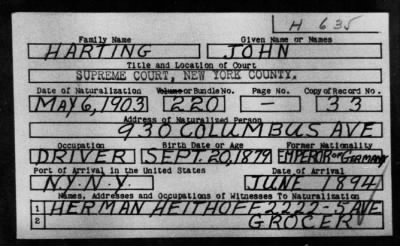 H 635
Family Name Given Name or Names
HARTING JOHN
Title and Location of Court
SUPREME COURT, NEW YORK COUNTY.
Date of Naturalization Volume or Bundle No. Page No. Copy of Record No.
MAY 6, 1903 220 — 33
Address of Naturalized Person
930 COLUMBUS AVE
Occupation Birth Date or Age Former Nationality
DRIVER SEPT. 20, 1879 EMPEROR OF GERMANY
Port of Arrival in the United States Date of Arrival
N.Y. N.Y. JUNE 1894
Names, Addresses and Occupations of Witnesses To Naturalization
1 HERMAN HEITHOFF 2222-5 AVE
2 GROCER